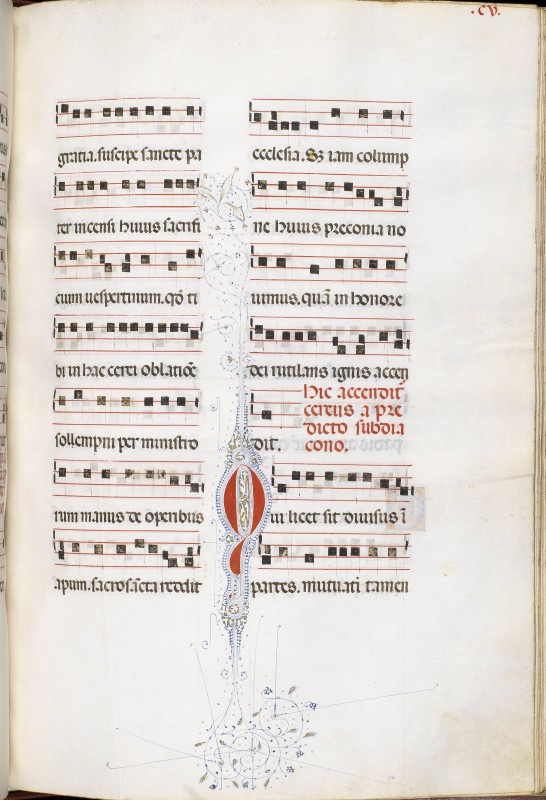 .CV.
gratia. suscipe sancte pa
ter incensi huius sacrifi
cium uespertinum. qd̄ ti
bi in hac cerei oblatiōe
sollempni per ministro
rum manus de operibus
apum. sacrosācta reddit
ecclesia. Sz iam colump
ne huius preconia no
uimus. quā in honore
dei rutilans ignis accen
dit.
hic accendit̄
cereus a pre
dicto subdia
cono.
Qui licet sit diuisus ī
partes. mutuati tamen